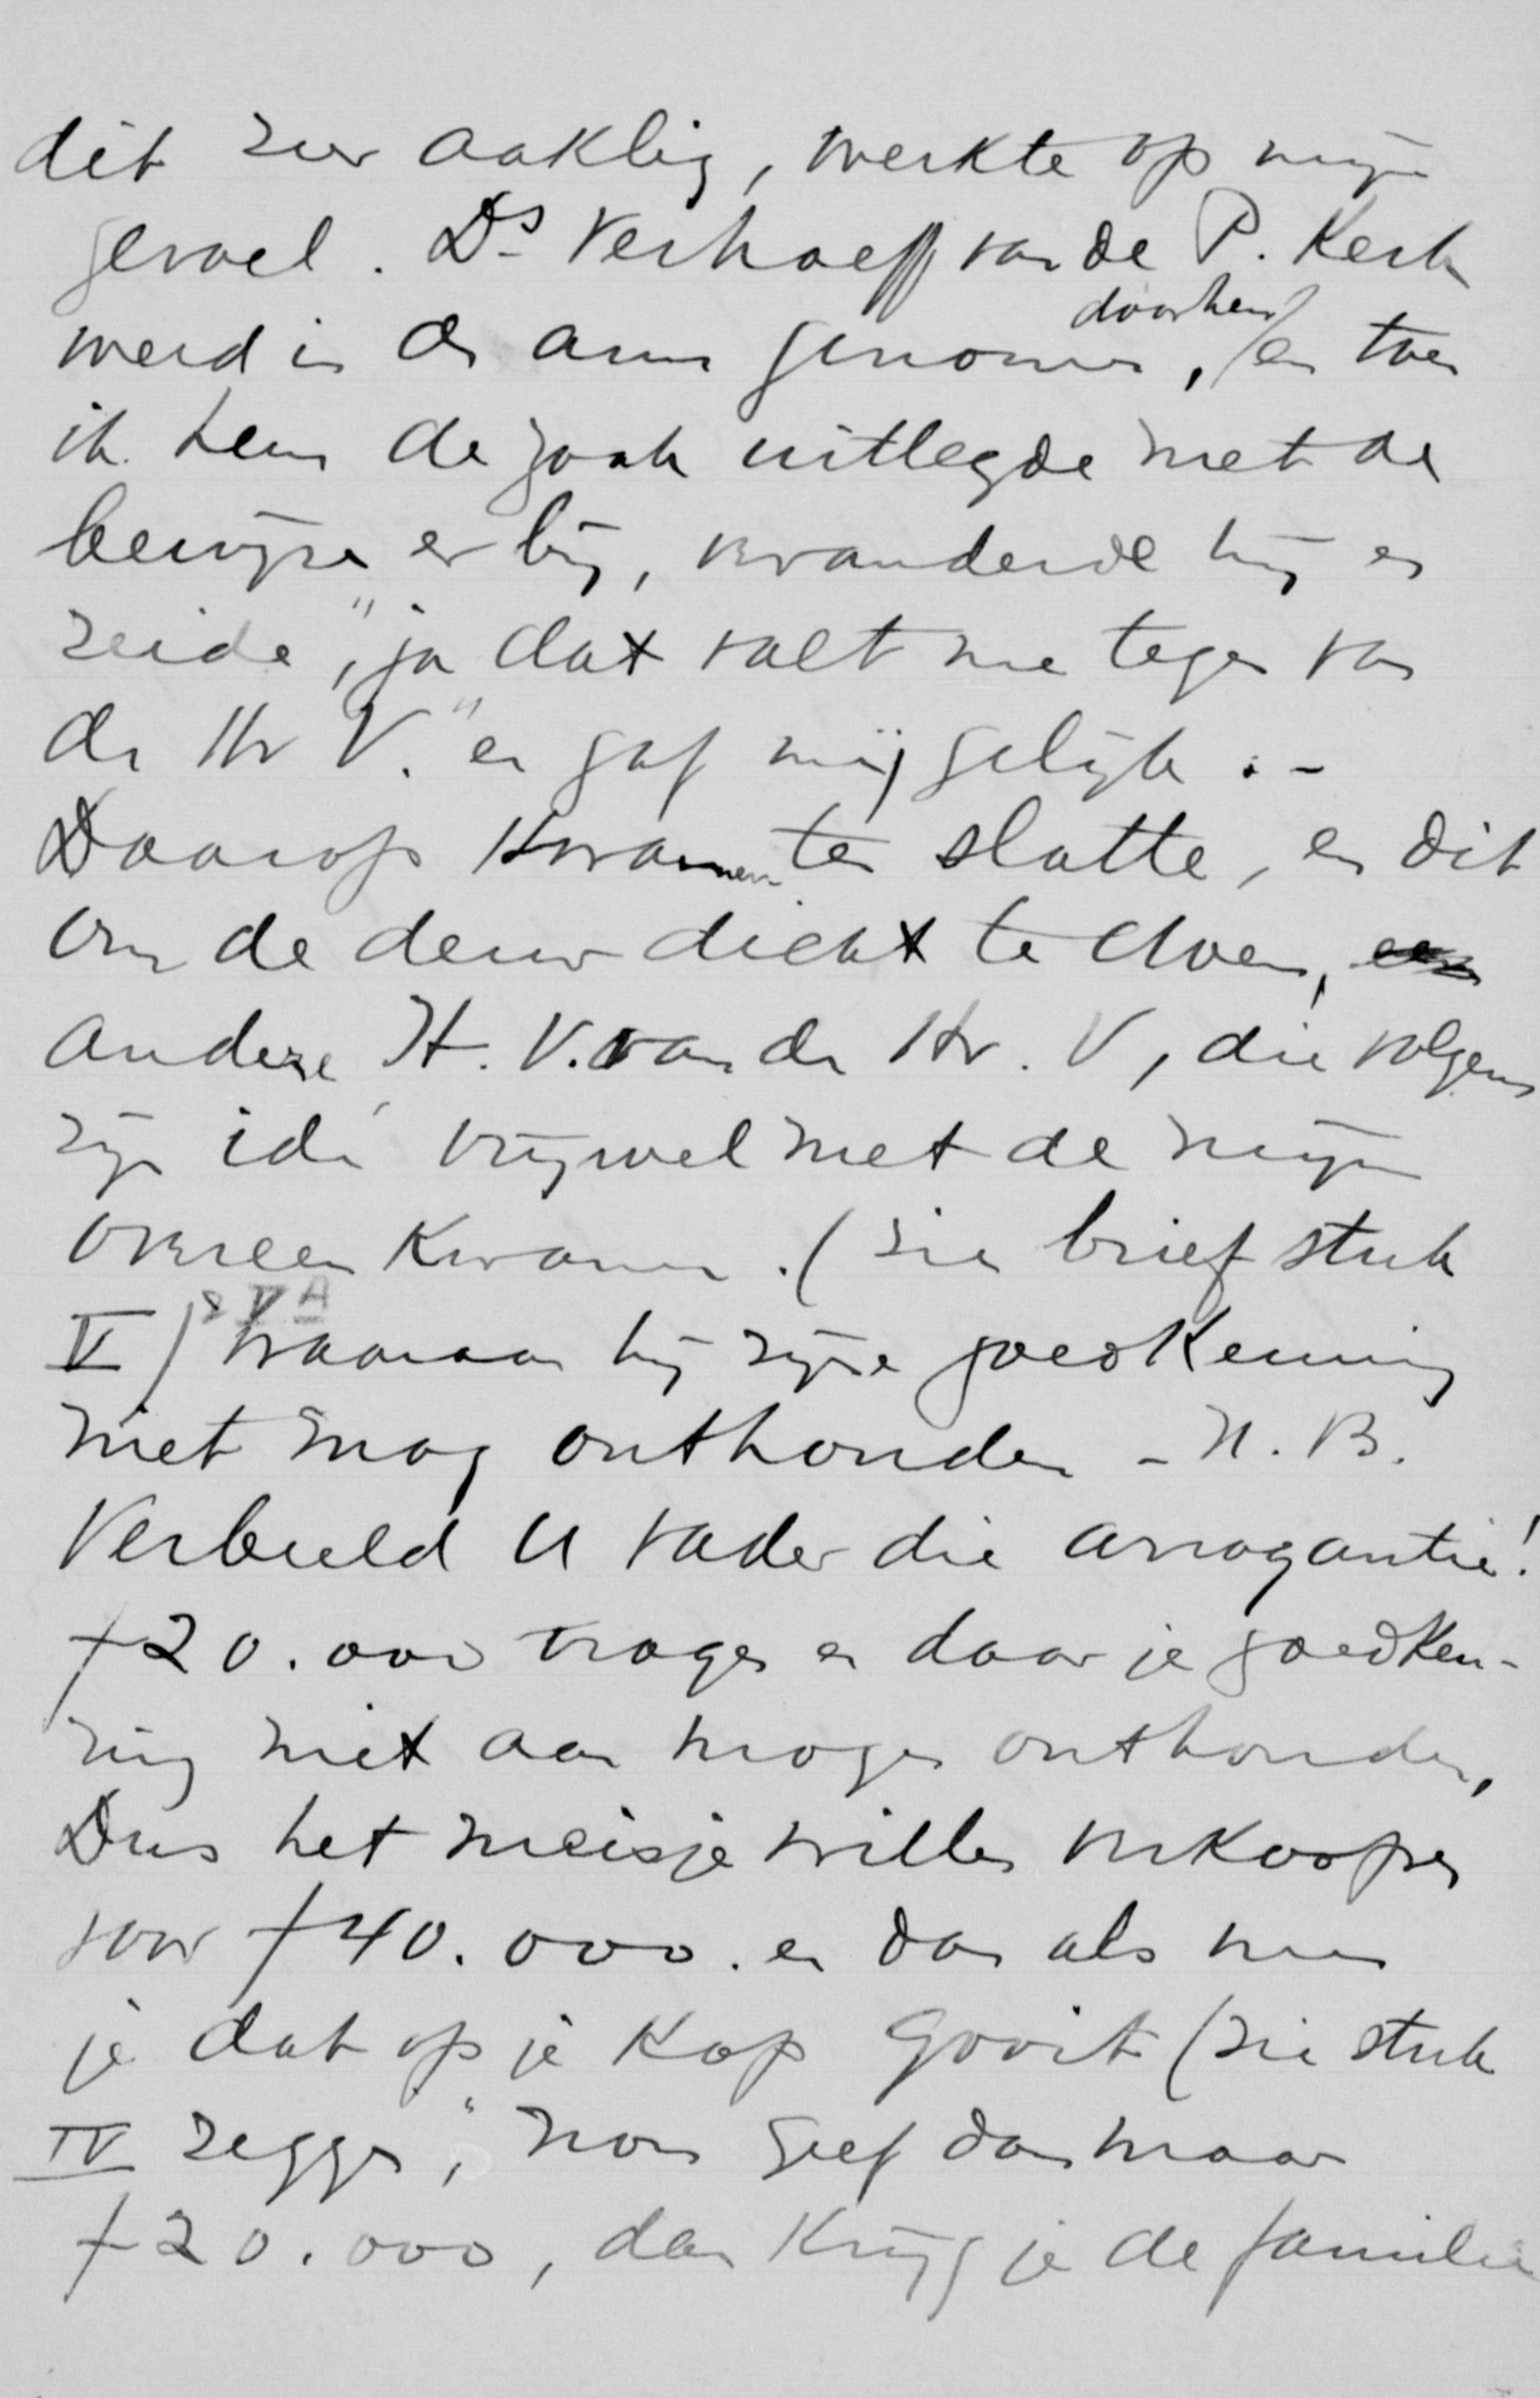 dit zeer aaklig, werkte op mijn
gevoel. Ds Verhoeff van de P. Kerk
werd in de arm genomen, door hem en toen
ik hem de zaak uitlegde met de
bewijzen er bij, veranderde hij en
zeide, "ja dat valt me tegen van
de Hr V." en gaf mij gelijk . -
Daarop kwamen ten slotte, en dit
om de deur dicht te doen,
andere H. V. van de Hr. V, die volgens
zijn idé vrijwel met de mijne
overeen kwamen. (zie brief stuk
V) & V A waaraan hij zijne goedkeuring
niet mag onthouden - N. B.
Verbeeld U vader die arrogantie!
f 20.000 vragen en daar je goedkeu-
ring niet aan mogen onthouden,
Dus het meisje willen verkoopen
voor f 40.000. en dan als men
je dat op je kop gooit (zie stuk
IV zeggen, "nou geef dan maar
f 20.000, dan krijg je de familie